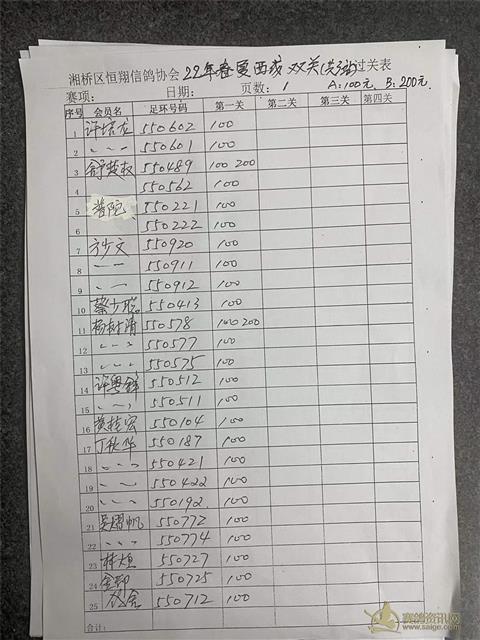 湘桥区恒翔信鸽协会 22年春夏西线双关(共3站)过关表
赛项: 日期: 页数: 1 A:100元 B:200元
序号 会员名 足环号码 第一关 第二关 第三关 第四关
1 许培龙 550602 100
2 〃 550601 100
3 舒楚权 550489 100 200
4 550562 100
5 普陀 550221 100
6 550222 100
7 方少文 550920 100
8 〃 550911 100
9 〃 550912 100
10 蔡少聪 550413 100
11 杨树清 550578 100 200
12 〃 550577 100
13 〃 550575 100
14 许粤锋 550512 100
15 〃 550511 100
16 黄桂宏 550104 100
17 丁秋华 550187 100
18 〃 550421 100
19 〃 550422 100
20 〃 550192 100
21 吴熠帆 550772 100
22 〃 550774 100
23 林烜 550727 100
24 550725 100
25 550712 100
合计:
赛鸽资讯网
www.saige.com